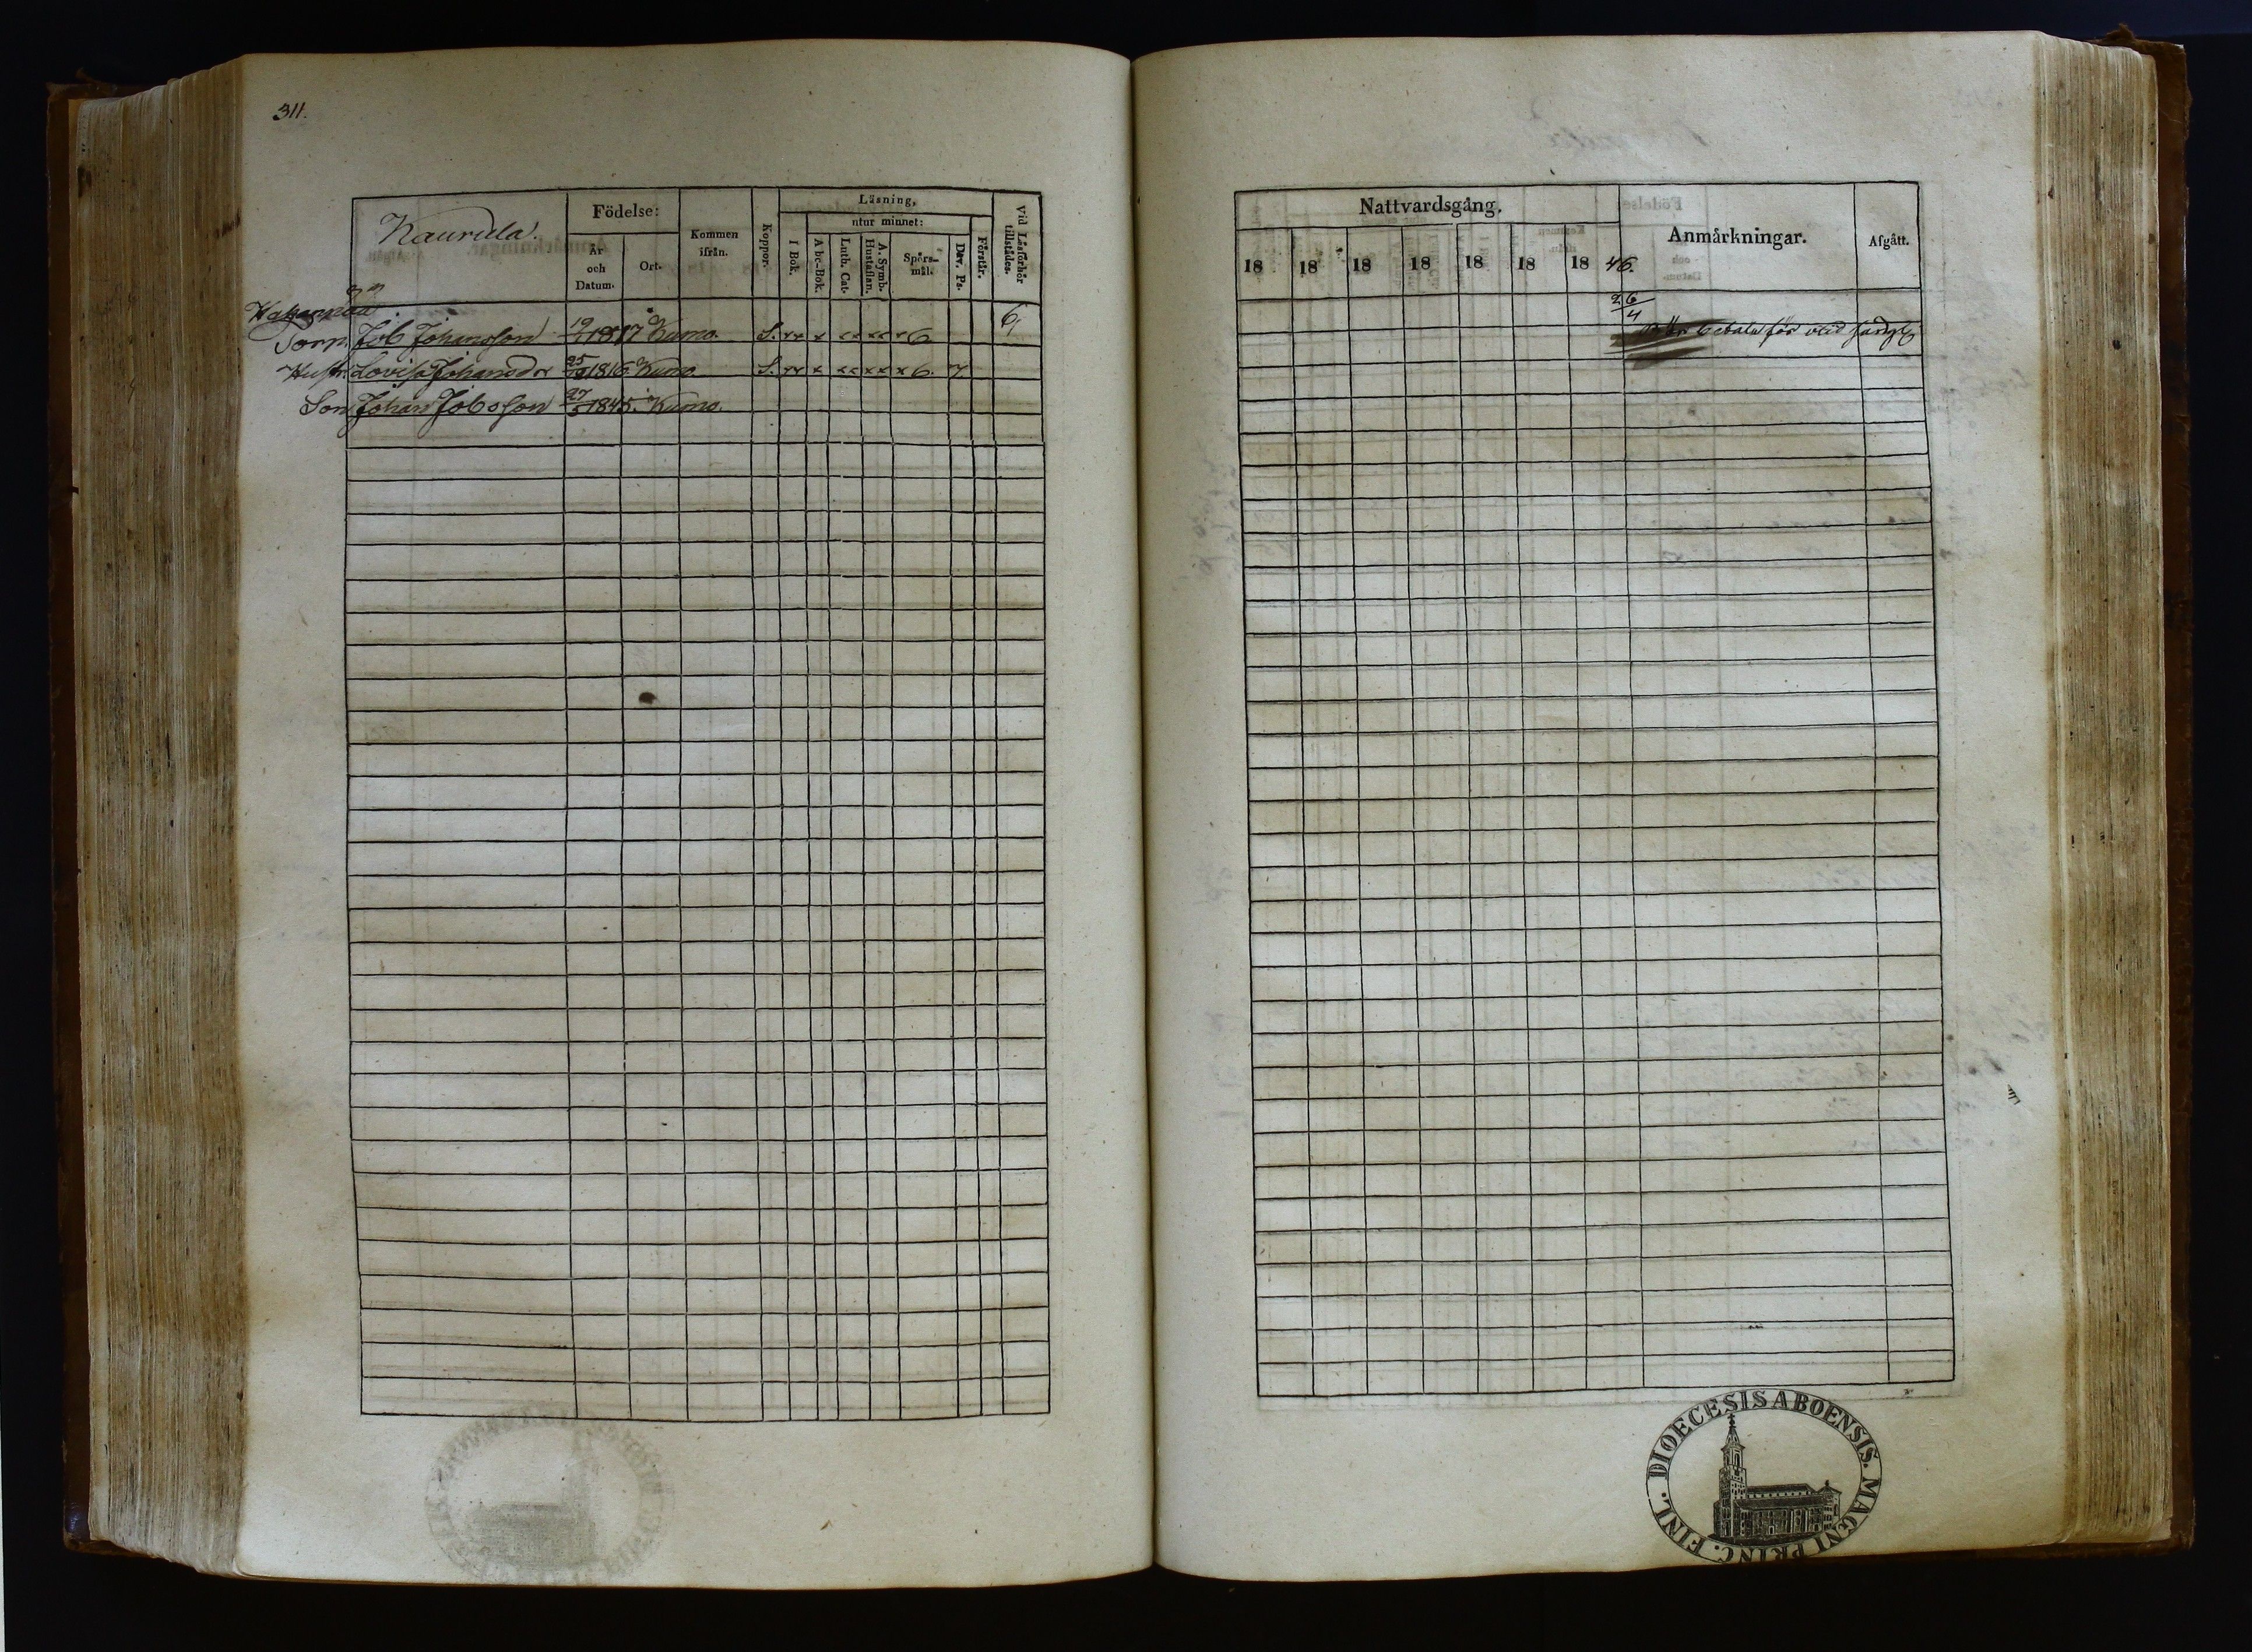 311.
Kaurula.
Födelse:
År och Datum.
Ort.
Kommen ifrån.
Koppor.
Läsning,
I Bok.
utur minnet:
Abc-Bok.
Luth. Cat.
A. Symb. Hustaflan.
Spörs-mål.
Dav. Ps.
Förstår.
Vid Läsförhör tillstädes.
Torp. Job Johansson 1817 Kumo. S. 6
Hustr. Lovisa Johansdr 1816 Kumo S. 6. 7.
Son Johan Jobsson 27/5 1845. Kumo.
Nattvardsgång.
18 18 18 18 18 18 18 46.
Anmärkningar.
Afgått.
26/4
DIOECESIS ABOENSIS. MAGNI PRINC. FINL.